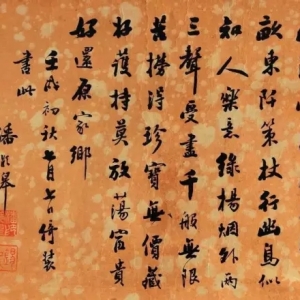 畝東阡策杖行此鳥似
知人樂意綠楊烟外兩
三聲受盡千般無限
苦撈得珍寶無價藏
好護持莫放蕩富貴
好還原家鄉
壬戌初秋七月七日倚裝
書此
潘齡皋